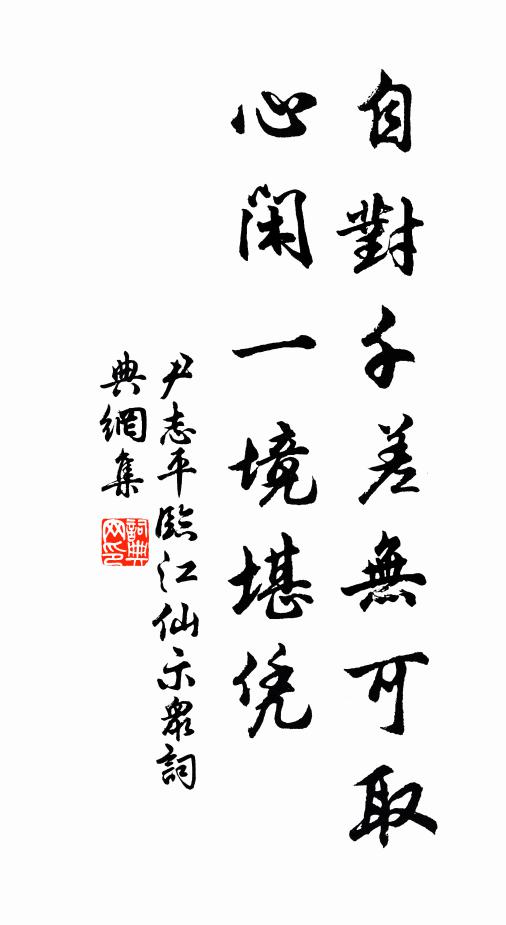 自對千差無可取
心閑一境堪凭
尹志平臨江仙示衆詞
典網集
詞典網印